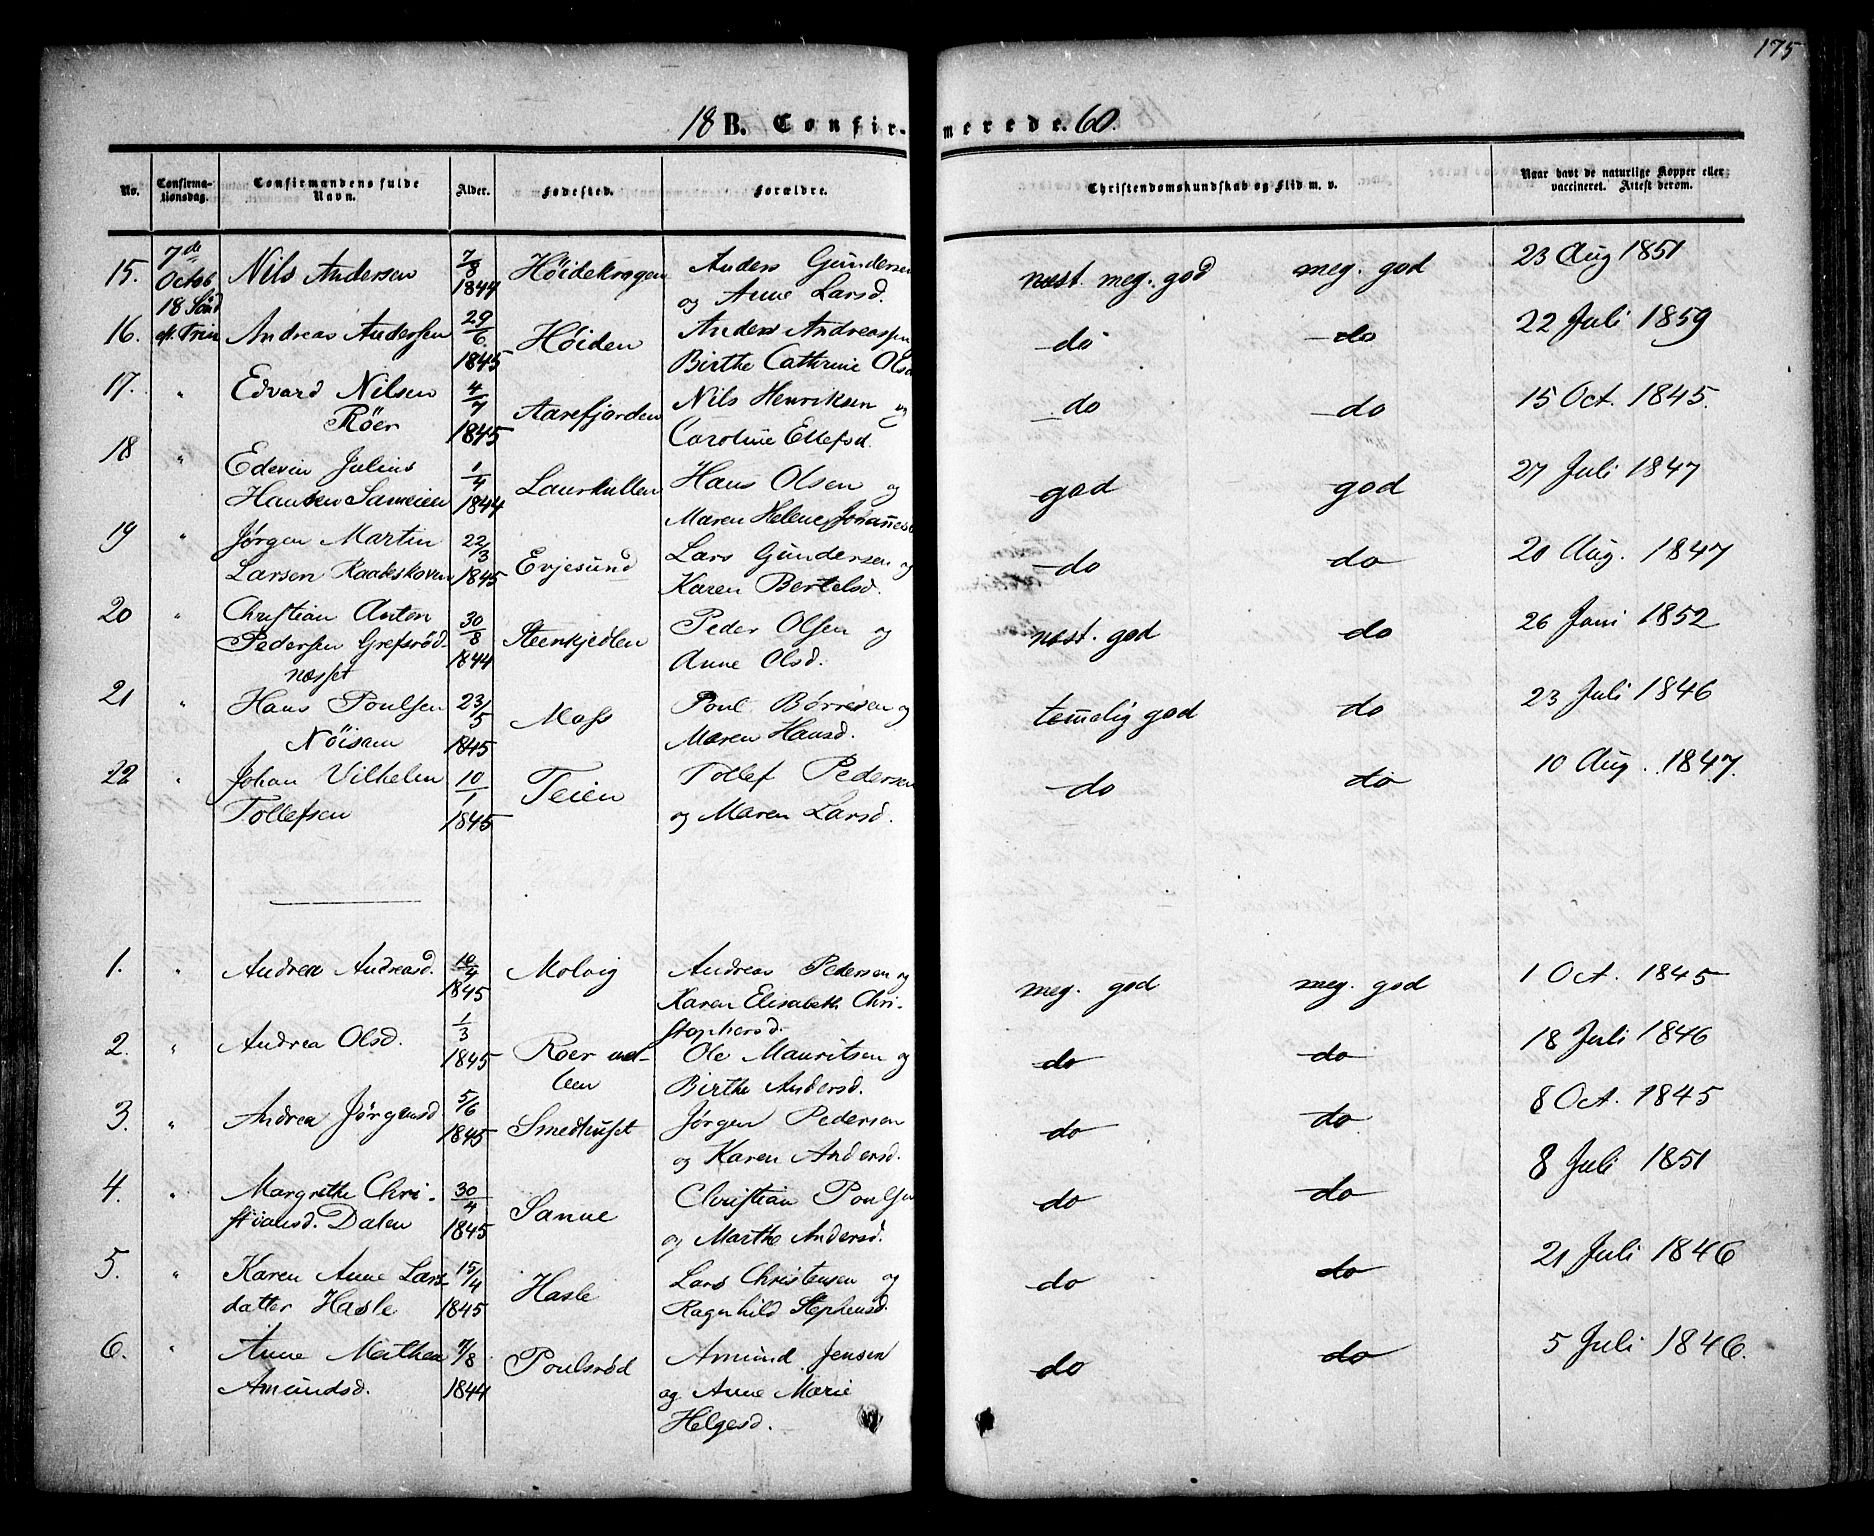 175
18 B. Confir- merede. 60.
No. Confirma- tionsdag. Confirmandens fulde Navn. Alder. Fødested. Forældre. Christendomskundskab og Flid m. v. Naar havt de naturlige Kopper eller vaccineret. Attest derom.
15. 7de Octob. Nils Andersen 7/8 1844 Höidekrogen Anders Gundersen
og Anne Larsd. næst. meg. god meg. god 23 Aug 1851
18 Sönd
16. ef. Trin Andreas Andersen 29/6 1845 Höiden Anders Andreassen
Birthe Cathrine Olsd do do 22 Juli 1859
17. " Edvard Nilsen
Röer 4/7 1845 Aarefjorden Nils Henriksen og
Caroline Ellefsd. do do 15 Oct. 1845.
18 " Edevin Julius
Hansen Sameien 1/4 1844 Laurkullen Hans Olsen og
Maren Helene Johannesd god god 27 Juli 1847
19 " Jørgen Martin
Larsen Raadeskoven 22/3 1845 Evjesund Lars Gundersen og
Karen Bertelsd. do do 20 Aug. 1847
20 " Christian Anton
Pedersen Grefsröd-
næsset 30/8 1844 Steenkjedlen Peder Olsen og
Anne Olsd. næst. god do 26 Juni 1852
21 " Hans Poulsen
Nöisom 23/5 1845 Moss Poul Børresen og
Maren Hansd. temelig god do 23 Juli 1846
22 " Johan Vilhelm
Tollefsen 10/1 1845 Teien Tollef Pedersen
og Maren Larsd. do do 10 Aug. 1847.
1. " Andrea Andreasd. 10/4 1845 Molvig Andreas Pedersen og
Karen Elisabeth Chri-
stophersd. meg. god meg. god 1 Oct. 1845
2. " Andrea Olsd. 1/3 1845 Roer ned-
len Ole Mauritsen og
Birthe Andersd. do do 18 Juli 1846
3. " Andrea Jørgensd 5/6 1845 Smedhuset Jørgen Pedersen
og Karen Andersd. do do 8 Oct. 1845
4. " Margrethe Chri-
stiansd. Dalen 30/4 1845 Sanne Christian Poulsen
og Marthe Andersd. do do 8 Juli 1851
5. " Karen Anne Lars-
datter Hasle 15/4 1845 Hasle Lars Christensen og
Ragnhild Stephensd. do do 21 Juli 1846
6. " Anne Mathea
Amundsd. 1844 Poulsröd Amund Jensen
og Anne Marie
Helgesd. do do 5 Juli 1846.